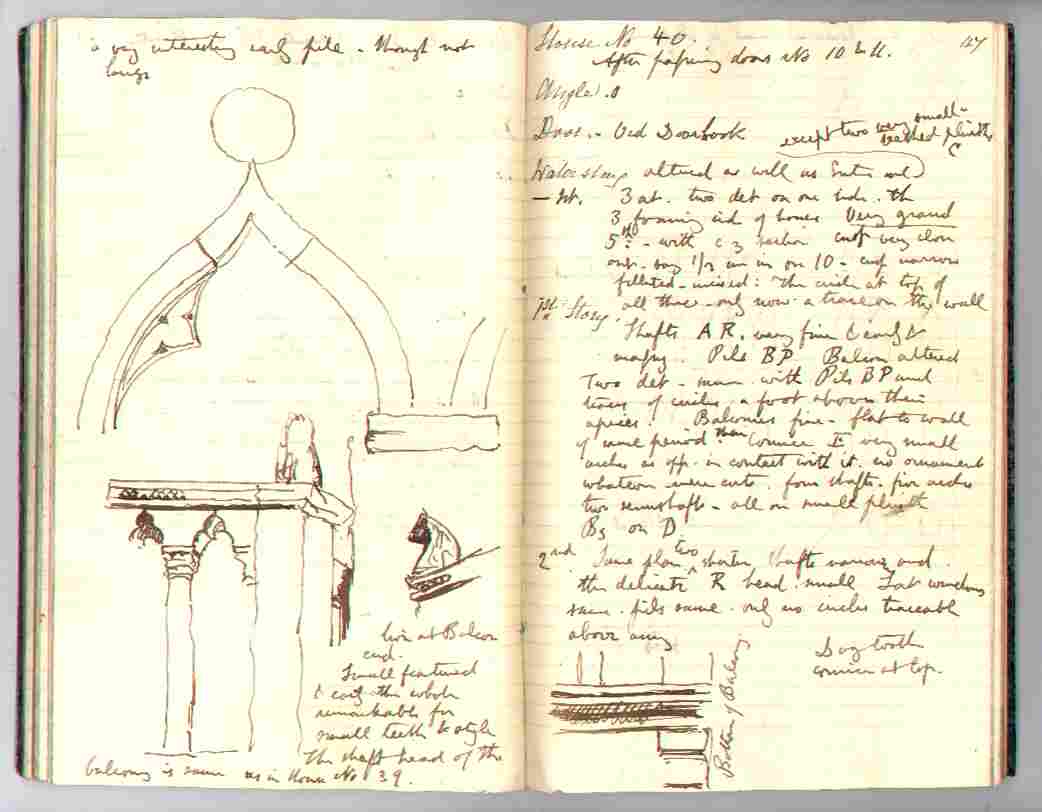 a very interesting early pile - though not
large
lion at Balcon
end.
Small featured
& early the whole
remarkable for
small teeth & style
The shaft head of the
balcony is same as in House No 39.
House No 40.
127
After passing doors No 10 & 11.
Angle. 0
Door. - Vid Doorbook
except two very small
plinths
altered as well as
3 at. two det on one side. the
3 forming end of house Very grand
5th - with very close
say 1/2 an in on 10 - narrow
filleted - : The circle at top of
all three - only now a trace on the wall
1st Story.
Shafts A R. very fine & early &
massy. Pils B P Balcon altered
Two det - same with Pils B P and
traces of circles a foot above their
apices. Balconies fine - flat to wall
of same period. Cornice E very small
arches as opp. in contact with it. no ornament
whatever four shafts. five arches
two semishafts - all on small plinth
Bs on D
2nd. Same plan two shorter, shafts narrow and
this delicate R head. small Lat windows
same. pils same. only no circles traceable
above any
Dogtooth
cornice at top.
Bottom of Balcony